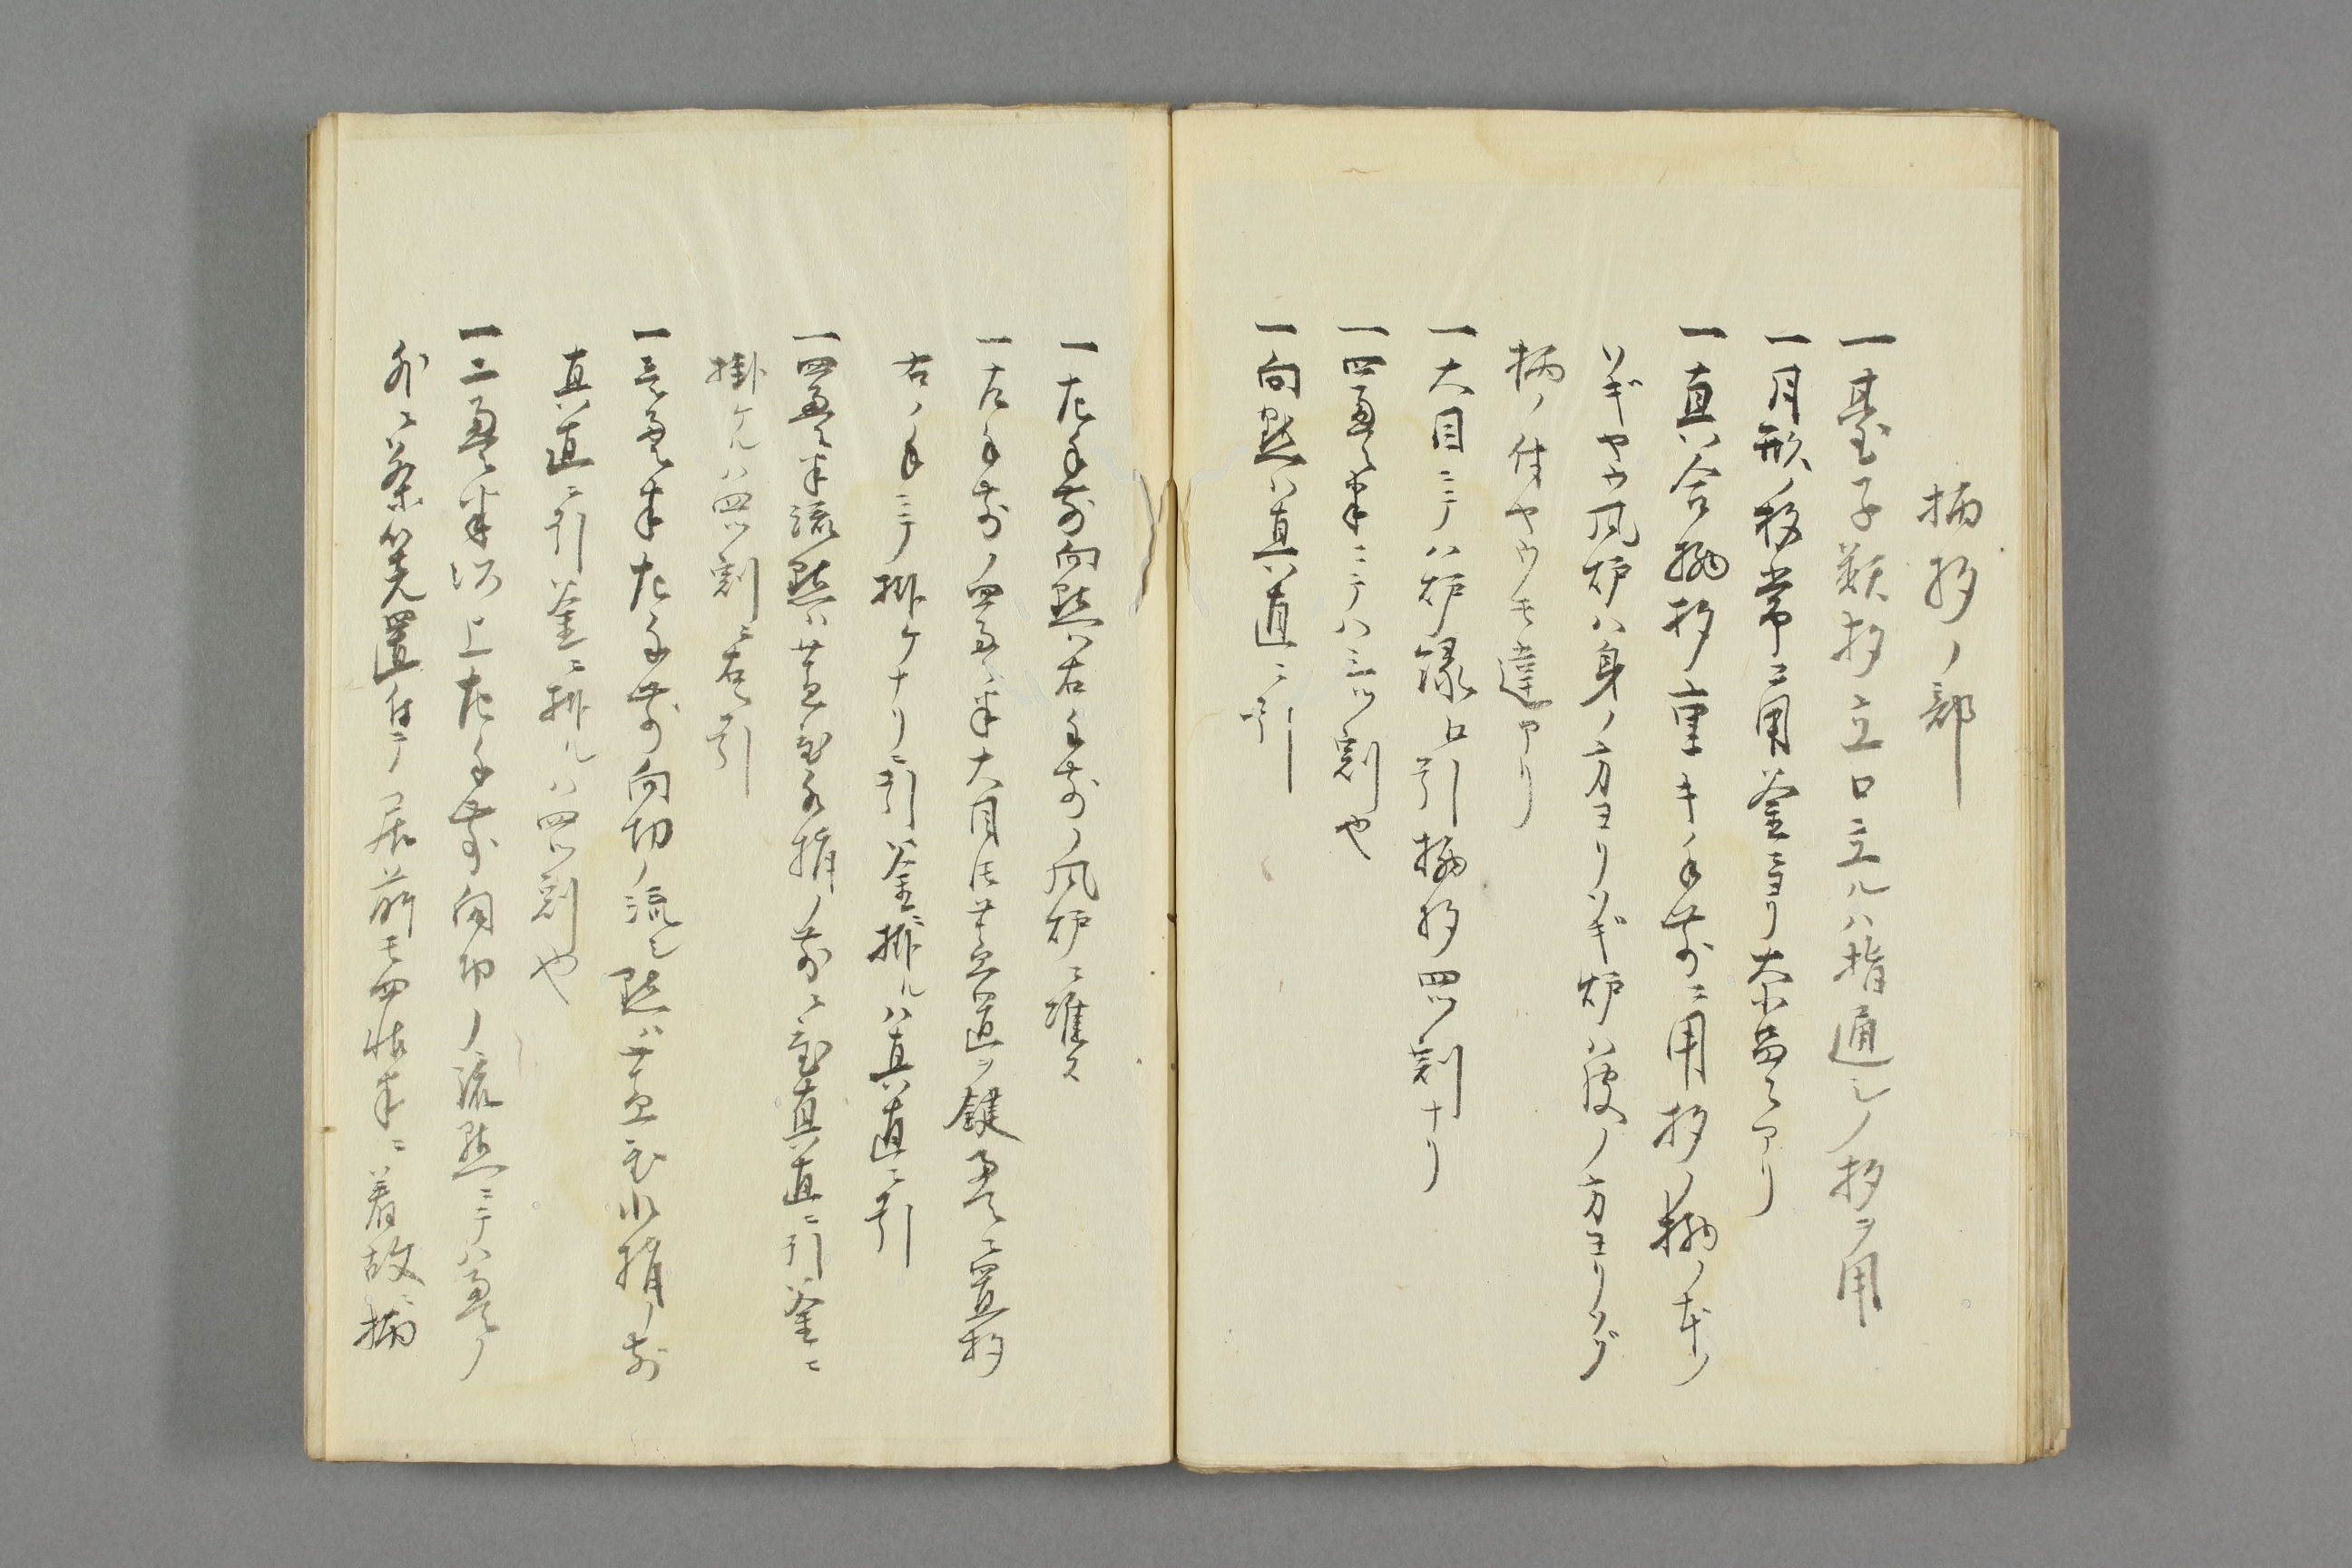 柄杓ノ部
一臺子類杓立ニ立ルハ指通シノ杓ヲ用
一月形ノ杓常ニ用釜ニヨリ大小畳アリ
一真ハ合柄杓重キノ手前ニ用杓ノ柄ノ本ノ
ソギヤウ風炉ハ身ノ方ヨリソギ炉ハ皮ノ方ヨリソグ
柄ノ付ヤウモ違アリ
一大目ニテハ炉縁ヘ引柄杓四ツ割ナリ
一四畳半ニテハ三ツ割也
一向點ハ真ハ直ニ引
一左手前向點ハ右手前ノ風炉ニ准ス
一左手前ノ四畳半大目ハ蓋置ヲ鍵畳ニ置杓
右ノ手ニテ掛ケナリニ引釜ニ掛ルハ真ハ直ニ引
一四畳半流點ハ蓋置水指ノ前ニ置真ハ直ニ引釜ニ
掛ケルハ四ツ割ニ右ヘ引
一三畳半左手前向切ノ流シ點ハ蓋置水指ノ前
真ハ直ニ引釜ニ掛ルハ四ツ割也
一二畳半以上左手前向切ノ流點ニテハ畳ノ
外ニ茶筅置付テ居前モ四帖半ニ着故ニ柄